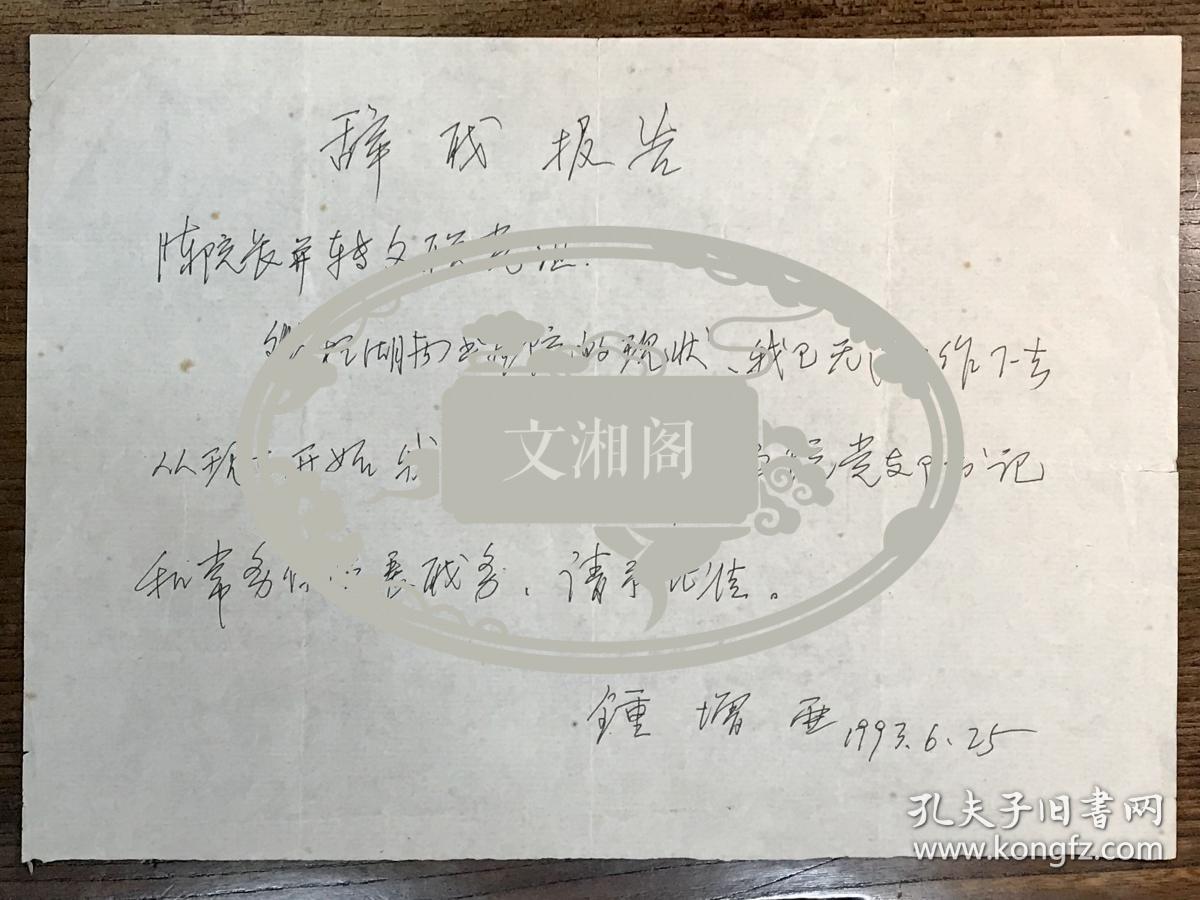 辞职报告
陈院长并转文联党组:
湖南书画院的现状、我已无 作下去
从现 开始 党支部书记
和常务 院长职务,请予批准。
鍾增亚 1993.6.25
文湘阁
孔夫子旧书网
www.kongfz.com